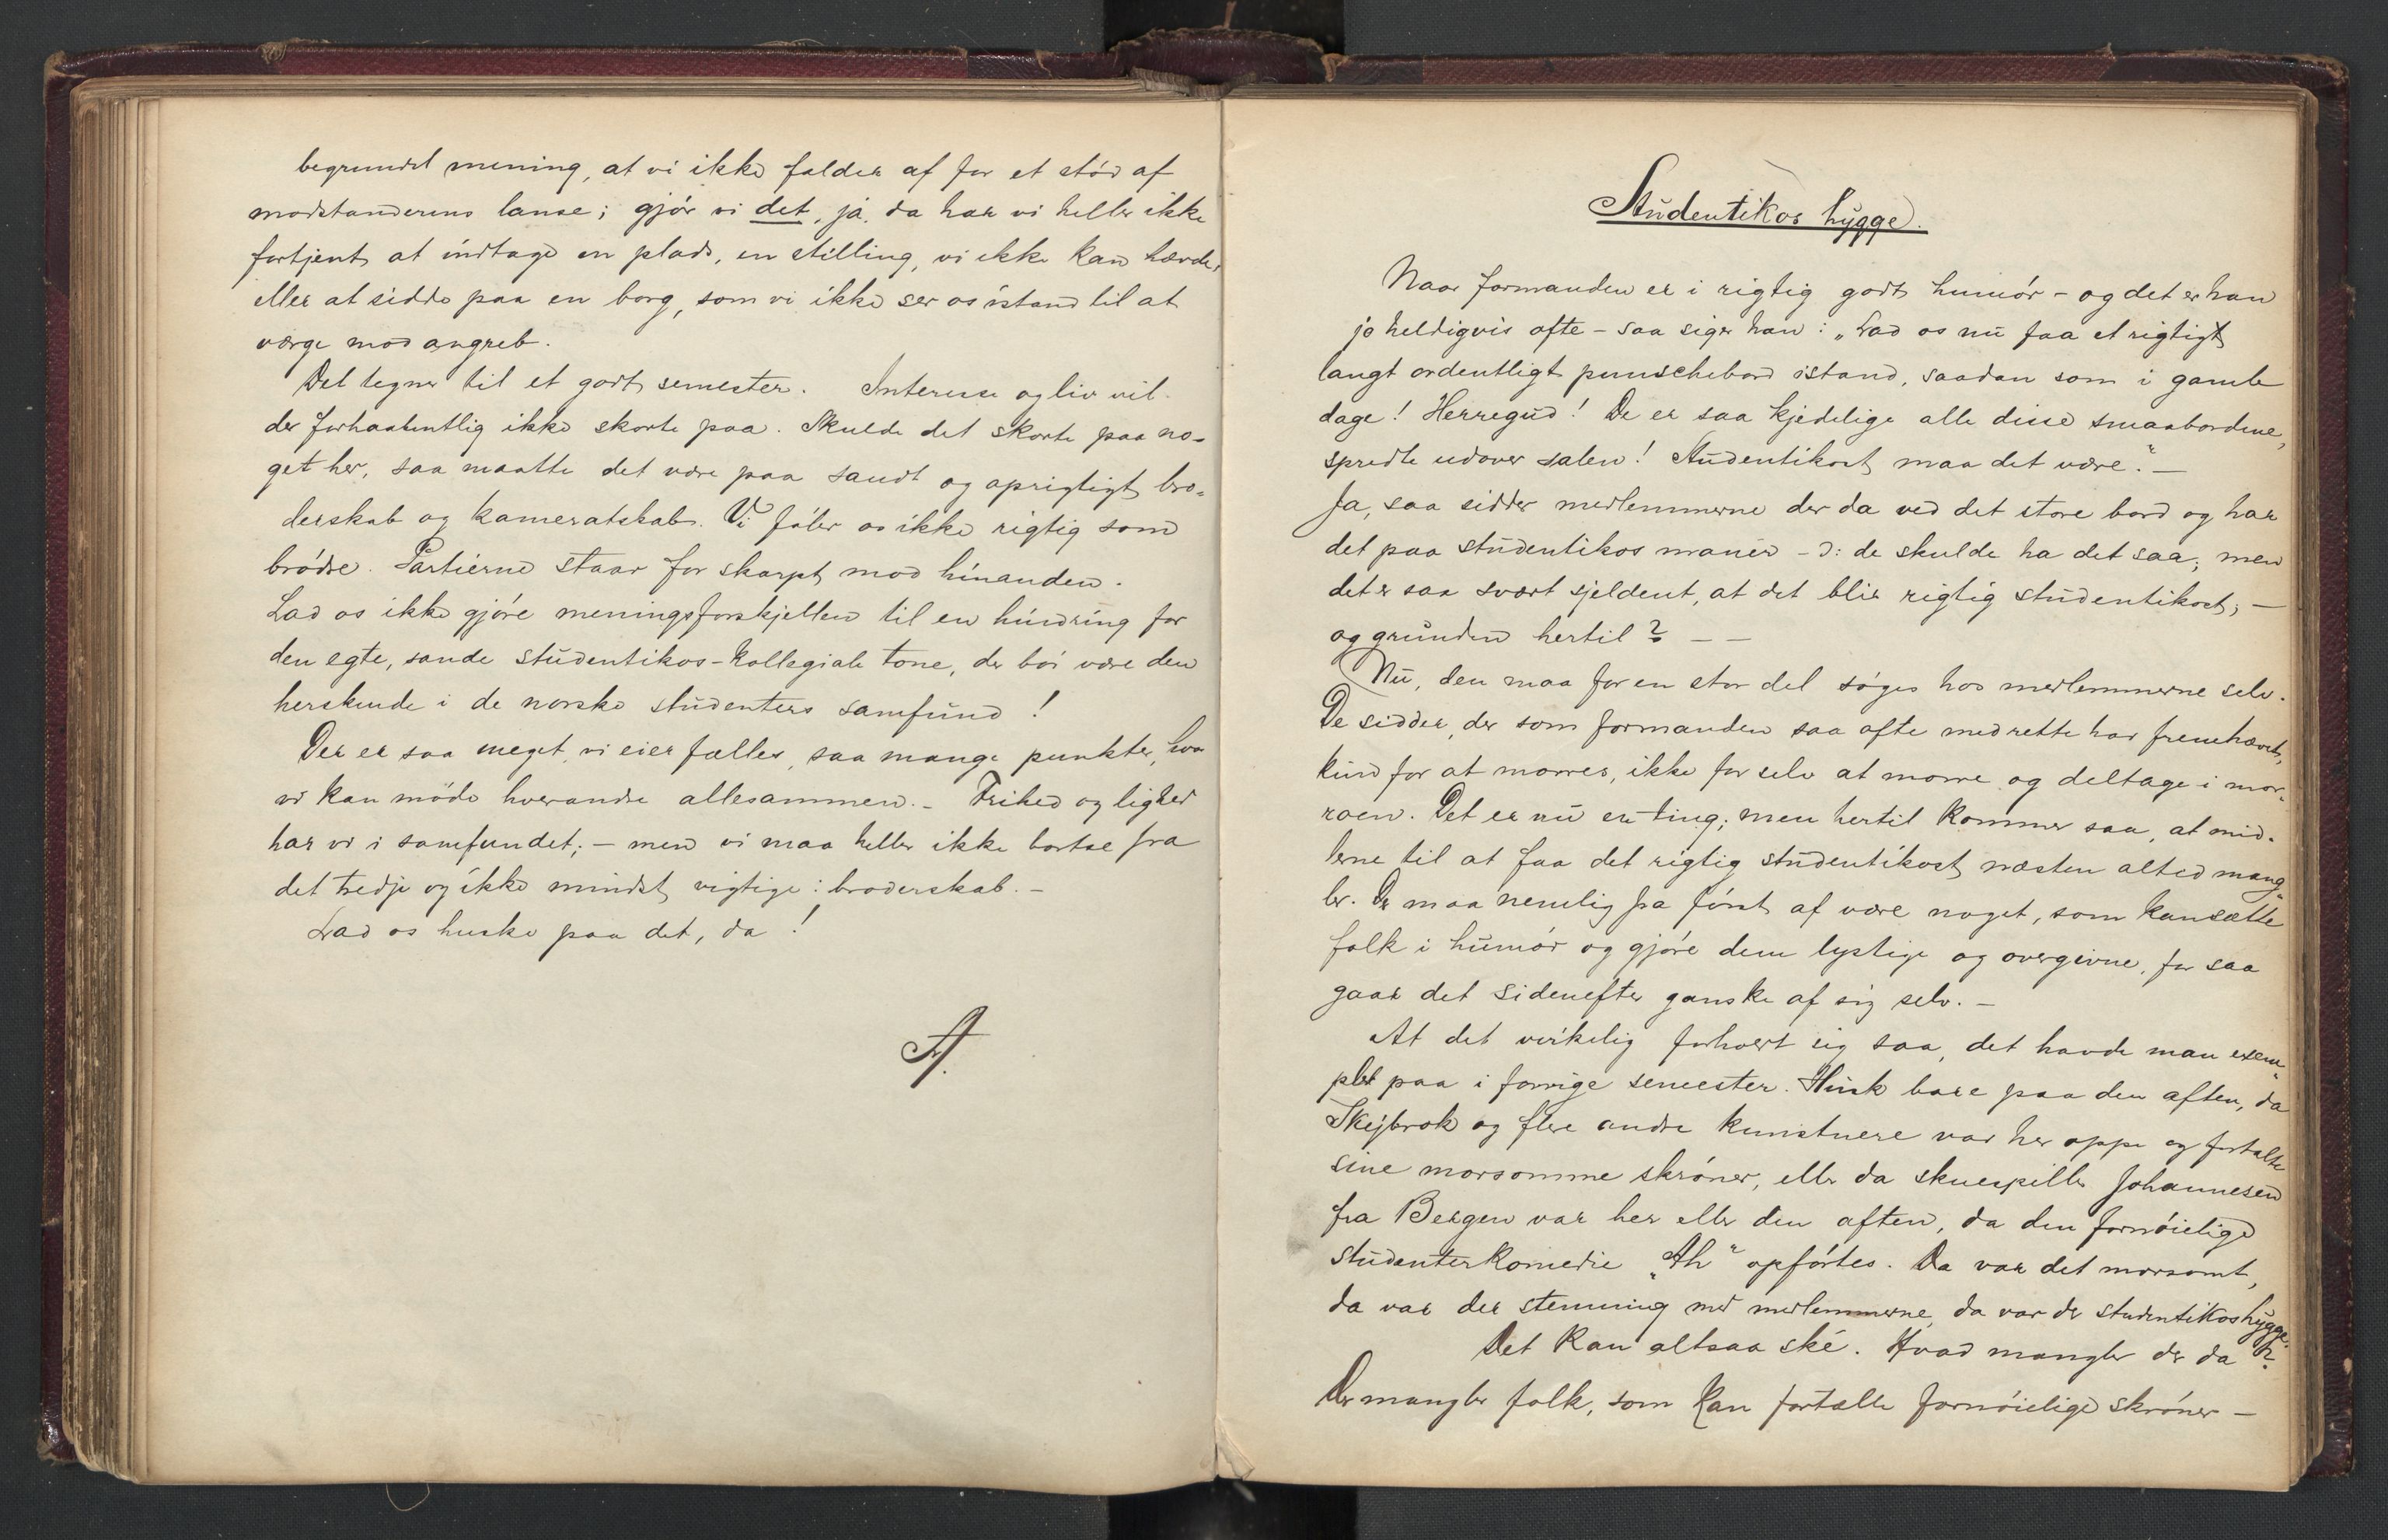 begrundet mening, at vi ikke falder af for et stød af
modstanderens lanse; gjør vi det, ja, da har vi heller ikke
fortjent at indtage en plads, en stilling, vi ikke kan hævde,
eller at sidde paa en borg, som vi ikke ser os istand til at
værge mod angreb.
Det tegner til et godt semester. Interesse og liv vil
der forhaabentlig ikke skorte paa. Skulde det skorte paa no-
get her, saa maatte det være paa sandt og oprigtigt bro-
derskab og kameratskab. Vi føler os ikke rigtig som
brødre. Partierne staar for skarpt mod hinanden.
Lad os ikke gjøre meningsforskjellen til en hindring for
den egte, sande studentikos-kollegiale tone, der bør være den
herskende i de norske studenters samfund!
Der er saa meget, vi eier fælles, saa mange punkter, hvor
vi kan møde hverandre allesammen. – Frihed og lighed
har vi i samfundet; – men vi maa heller ikke bortse fra
det tredje og ikke mindst vigtige: broderskab. –
Lad os huske paa det, da!
A.
Studentikos hygge.
Naar formanden er i rigtig godt humør – og det er han
jo heldigvis ofte – saa siger han: „Lad os nu faa et rigtigt
langt ordentligt punschebord istand, saadan som i gamle
dage! Herregud! De er saa kjedelige alle disse smaabordene,
spredte udover salen! Studentikost maa det være." –
Ja, saa sidder medlemmerne der da ved det store bord og har
det paa studentikos manér – ɔ: de skulde ha det saa; men
det er saa svært sjeldent, at det blir rigtig studentikost; –
og grunden hertil? – –
Nu, den maa for en stor del søges hos medlemmerne selv.
De sidder, der som formanden saa ofte med rette har fremhævet,
kun for at morres, ikke for selv at morre og deltage i mor-
roen. Det er nu en ting; men hertil kommer saa, at mid-
lerne til at faa det rigtig studentikost næsten altid mang-
ler. Der maa nemlig fra først af være noget, som kan sætte
folk i humør og gjøre dem lystige og overgivne, for saa
gaar det sidenefter ganske af sig selv. –
At det virkelig forholdt sig saa, det havde man exem-
pler paa i forrige semester. Husk bare paa den aften, da
Skeibrok og flere andre kunstnere var her oppe og fortalte
sine morsomme skrøner, eller da skuespiller Johannesen
fra Bergen var her eller den aften, da den fornøielige
studenterkomedie „Ah" opførtes. Da var det morsomt,
da var der stemning med medlemmerne, da var der studentikos hygge.
Det kan altsaa ské. Hvad mangler der da?
Der mangler folk, som kan fortælle fornøielige skrøner –